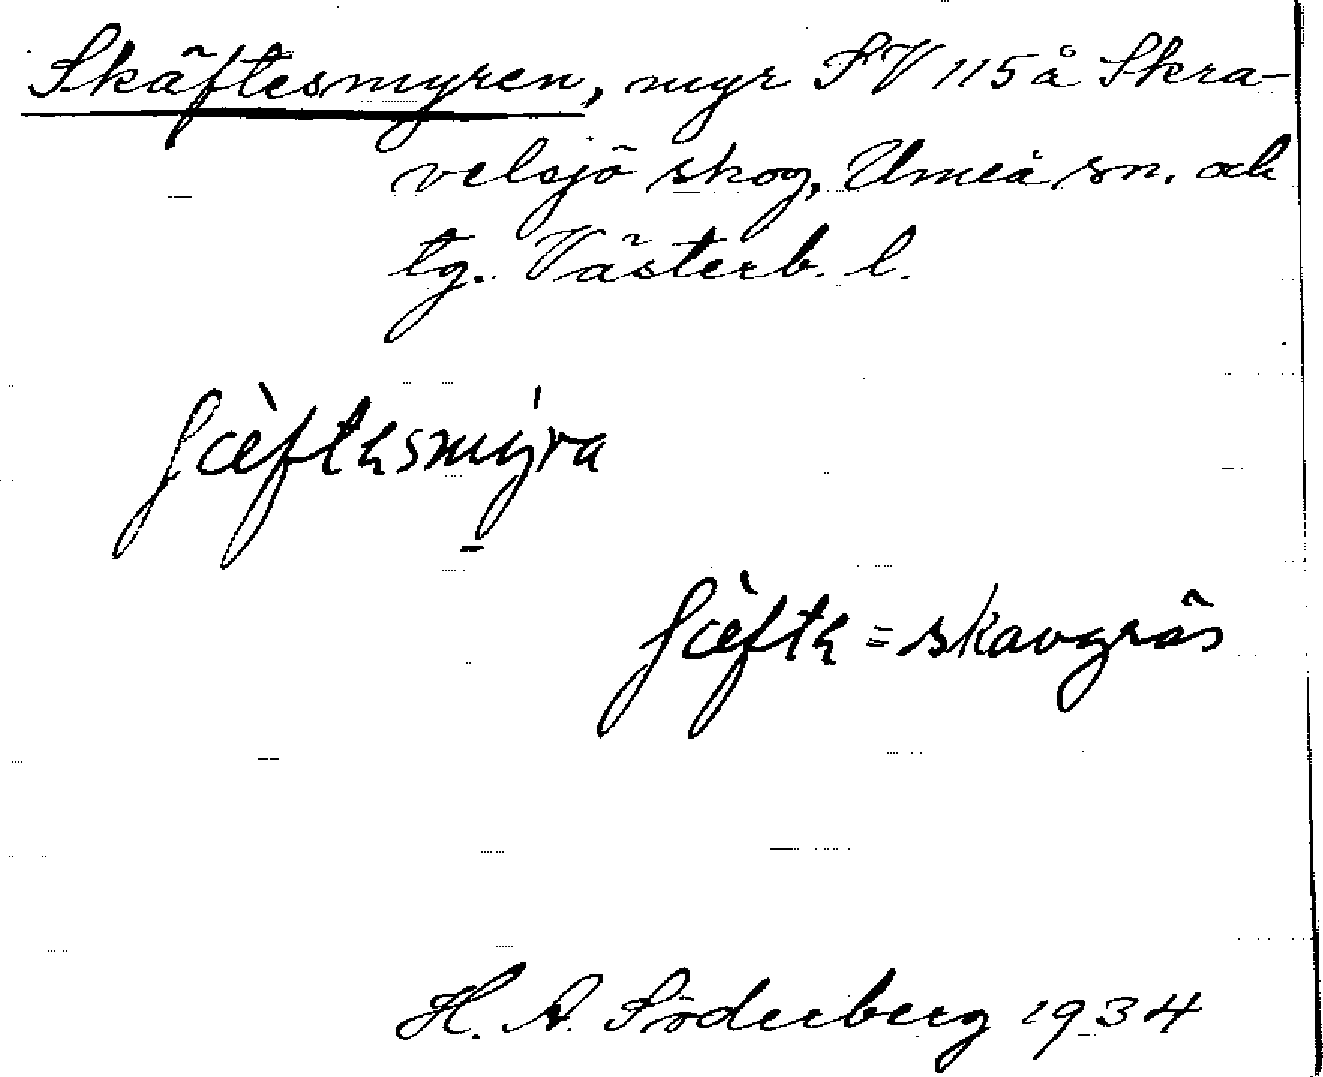 Skäftesmyren, myr SV 115 å Skra-
velsjö skog, Umeå sn. och
tg. Västerb. l.
ʃæ̀ftɩsmýra
ʃæ̀ftɩ = skavgräs
H. A. Söderberg 1934